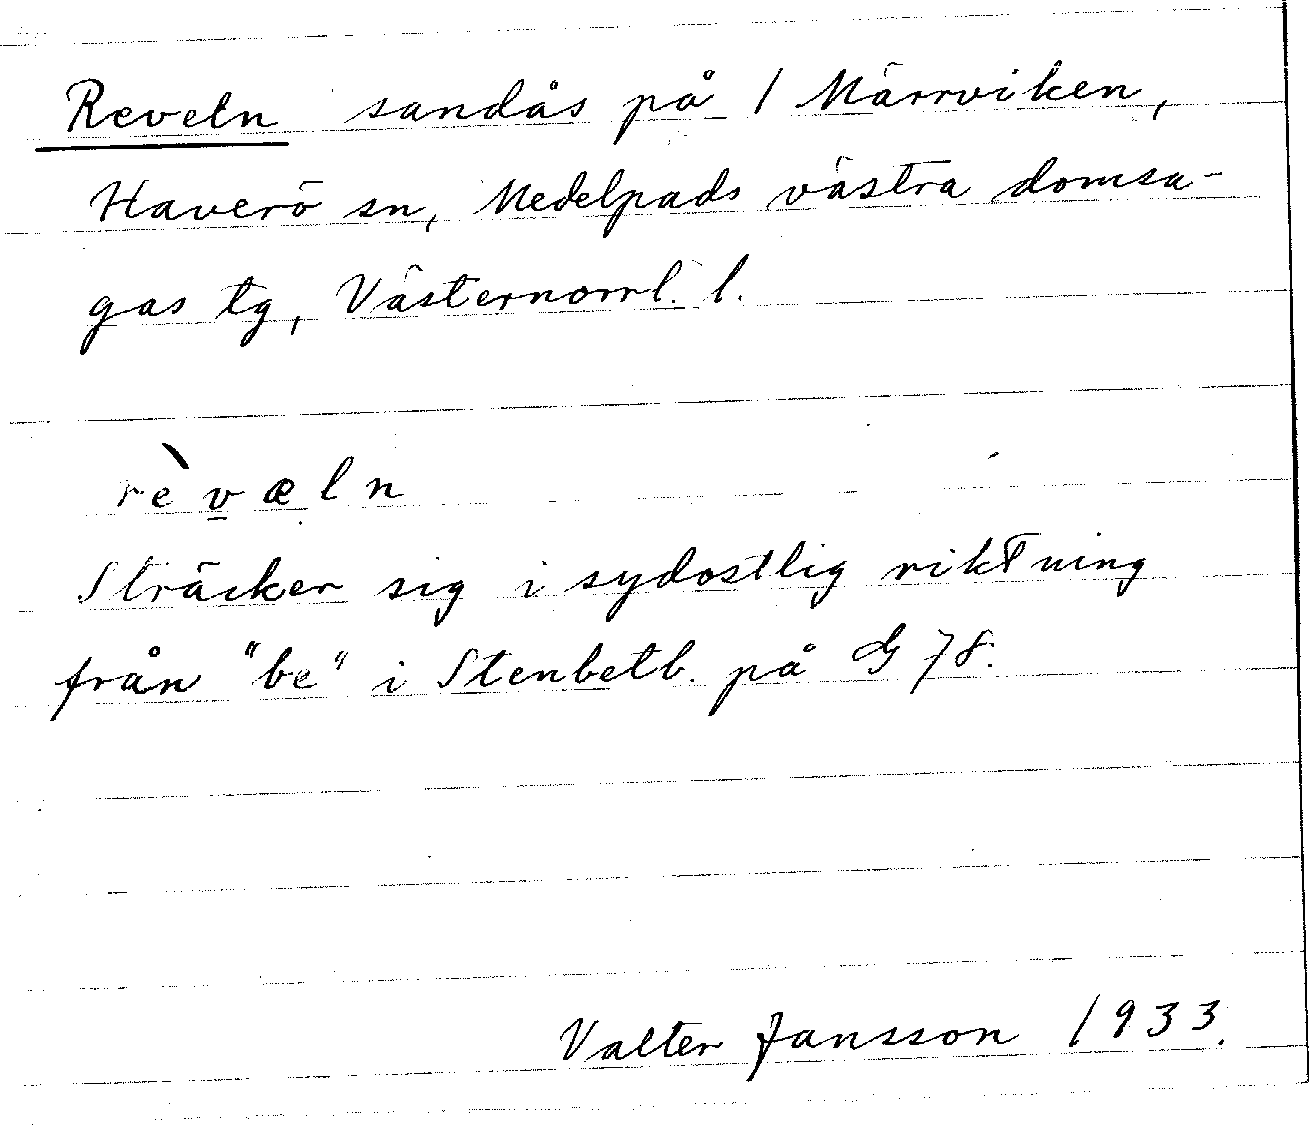 Reveln sandås på 1 Märrviken,
Haverö sn, Medelpads västra domsa-
gas tg, Västernorrl. l.
rèv̲æln
Sträcker sig i sydostlig riktning
från "be" i Stenbetb. på G 78.
Valter Jansson 1933.